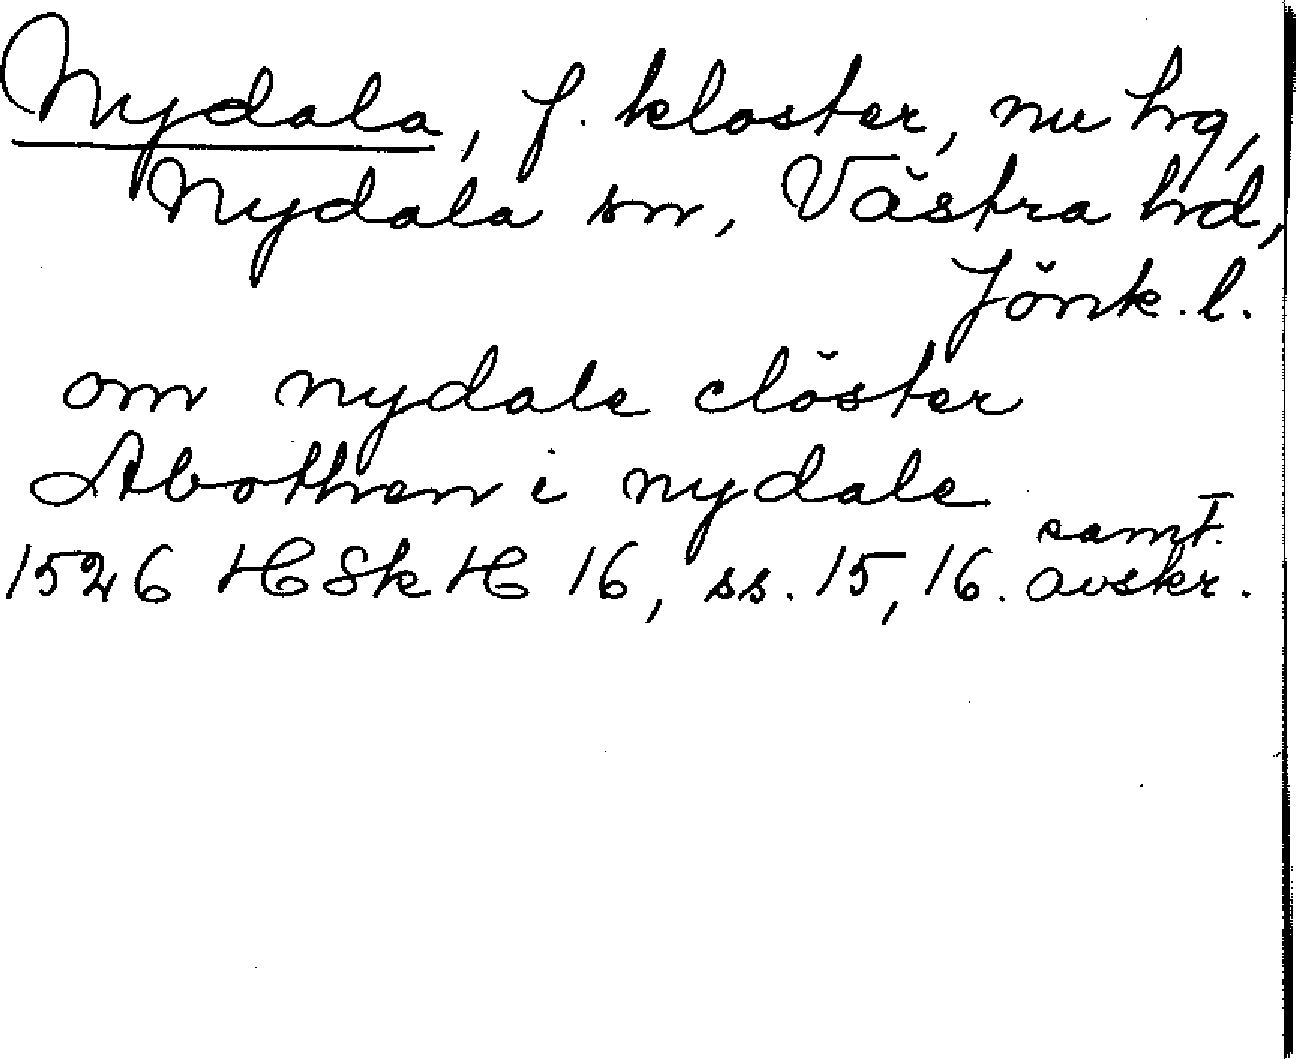 Nydala, f. kloster, nu hg,
Nydala sn, Västra hd,
Jönk. l.
om nydale clöster
Abothen i nydale
samt.
1526 HSkH 16, ss. 15, 16. avskr.